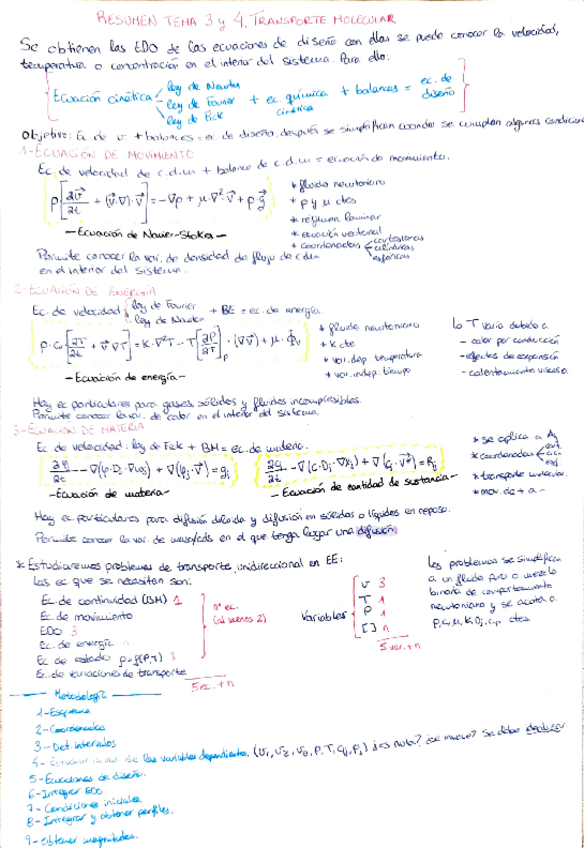 RESUMEN TEMA 3 y 4. TRANSPORTE MOLECULAR
Se obtienen las EDO de las ecuaciones de diseño con ellas se puede conocer la velocidad,
temperatura o concentración en el interior del sistema. Para ello:
Ecuación cinética
ley de Newton
ley de Fourier
ley de Fick
+ ec. química cinética + balances = ec. de diseño
Objetivo: Ec de v + balances = ec de diseño, después se simplifican cuando se cumplan algunas condiciones
1-ECUACIÓN DE MOVIMIENTO
Ec. de velocidad de c.d.m + balance de c.d.m = ecuación de movimiento.
ρ[∂v⃗/∂t + (v⃗·∇)·v⃗] = -∇p + μ·∇²·v⃗ + ρ·g⃗
-Ecuación de Navier-Stokes-
* fluido newtoniano
* ρ y μ ctes
* régimen laminar
* ecuación vectorial
* coordenadas
cartesianas
cilíndricas
esféricas
Permite conocer la var. de densidad de flujo de cdm
en el interior del sistema.
2-ECUACIÓN DE ENERGÍA
Ec. de velocidad
ley de Fourier
ley de Newton
+ BE = ec. de energía.
-Ecuación de energía-
* fluido newtoniano
* k cte
* var. dep. temperatura
* var. indep. tiempo
la T varía debido a
- calor por conducción
- efectos de expansión
- calentamiento viscoso
Hay ec particulares para gases, sólidos y fluidos incompresibles.
Permite conocer la var. de calor en el interior del sistema.
3-ECUACIÓN DE MATERIA
Ec de velocidad: ley de Fick + BM = ec. de materia.
-Ecuación de materia-
- Ecuación de cantidad de sustancia-
* se aplica a
* coordenadas
* transporte molecular
Hay ec particulares para difusión y difusión en sólidos o líquidos en reposo.
Permite conocer la var. de en el que tenga lugar una difusión.
* Estudiaremos problemas de transporte unidireccional en EE:
Las ec que se necesitan son:
Ec. de continuidad (BM) 1
Ec. de movimiento
EDO 3
Ec. de energía
Ec de estado ρ=f(P,T) 1
Ec. de variaciones de transporte
5 ec. + n
nº ec.
(al menos 2)
Variables
v 3
T 1
P 1
[ ] n
5 var. + n
Los problemas se simplifican
a un fluido puro o mezcla
binaria de comportamiento
newtoniano y se acota a
ctes
Metodología
1-Esquema
2-Coordenadas
3-Det. intervalos
4- Estudiar la var. de las variables dependientes. ¿es nula? ¿se mueve? Se debe
5-Ecuaciones de diseño.
6-Integrar EDO
7- Condiciones iniciales
8- Integrar y obtener perfiles.
9-obtener magnitudes.